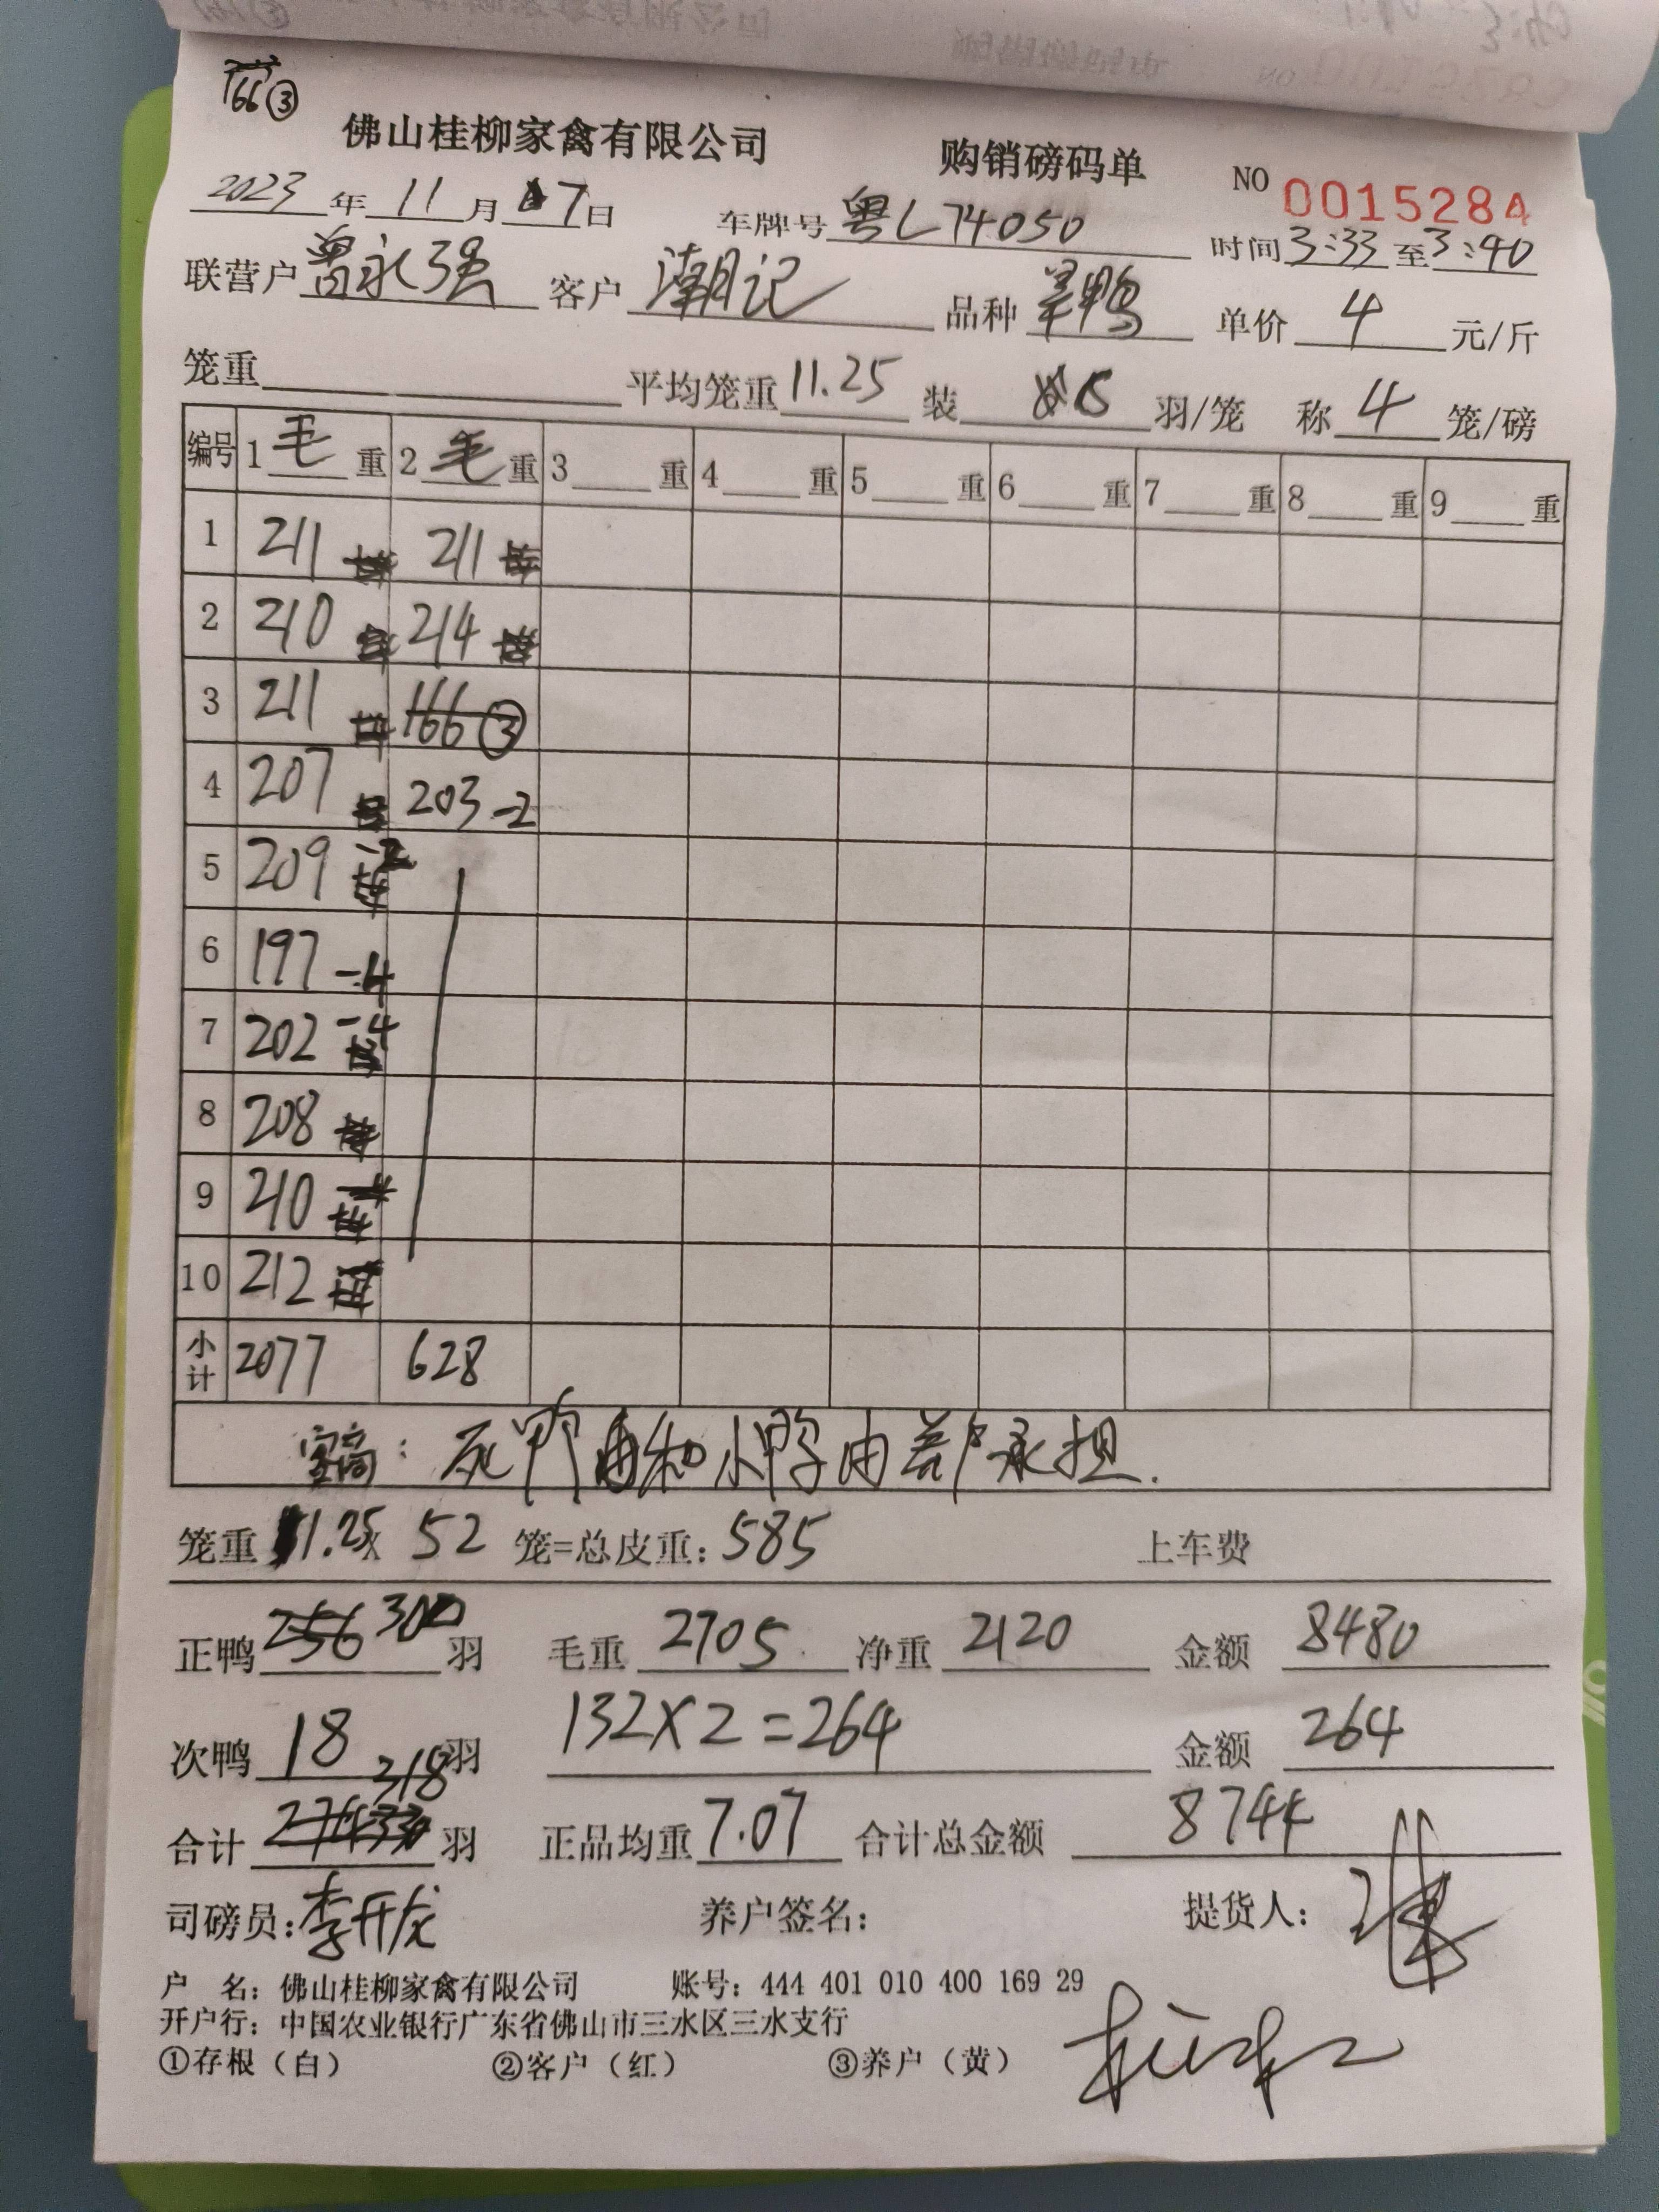 166③
佛山桂柳家禽有限公司 购销磅码单 NO 0015284
2023年11月7日 车牌号 粤L74050 时间 3:33 至 3:40
联营户 曾永强 客户 潮记 品种 鸭 单价 4 元/斤
笼重 平均笼重 11.25 装 6 羽/笼 称 4 笼/磅
编号 1 毛 重 2 毛 重 3 重 4 重 5 重 6 重 7 重 8 重 9 重
1 211 211
2 210 214
3 211 166③
4 207 203 -2
5 209 -2
6 197 -4
7 202 -4
8 208
9 210
10 212
小计 2077 628
死鸭和小鸭由养户承担.
笼重 11.25 x 52 笼=总皮重: 585 上车费
正鸭 256 300 羽 毛重 2705 净重 2120 金额 8480
次鸭 18 羽 132X2=264 金额 264
合计 318 羽 正品均重 7.07 合计总金额 8744
司磅员: 李开龙 养户签名: 提货人:
户 名: 佛山桂柳家禽有限公司 账号: 444 401 010 400 169 29
开户行: 中国农业银行广东省佛山市三水区三水支行
①存根（白） ②客户（红） ③养户（黄）